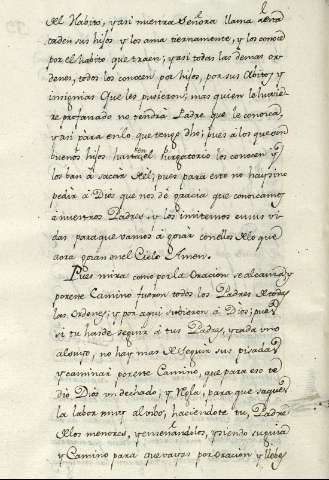 el Habito, y asi nuestra Señora llama a esta
orden sus hijos y los ama tiernamente, y los conoce
por el habito que traen; y asi todas las demas or
denes, todos los conocen por hijos, por sus Abitos y
insignias Que les pusieron; mas quien lo hubie
re profanado no tendra Padre que le conosca,
y asi para en lo que tengo dho; pues a los que son
buenos hijos hasta el Purgatorio los conocen y
los ban a sacar del; pues para esto no hay sino
pedir â Dios que nos dê gracia que conoscamos
a nuestros Padres, y los imitemos en sus vi
das para que vamos â gosar con ellos de lo que
aora gosan en el Cielo Amen.
Pues mira como por la Oracion se alcansa y
por este Camino fueron todos los Padres de todas
las Ordenes; y por aqui subieron â Dios; pues
si tu has de seguir â tus Padres, y cada uno
al suyo, no hay mas de seguir sus pisadas
y caminar por este Camino, que para eso te
dio Dios un dechado, y Regla, para que saques
la labor muy al vibo, haciendote tu, Padre
de los menores, y enseñandolos, y siendo su guia
y Camino para que vayas por Oracion y llebes